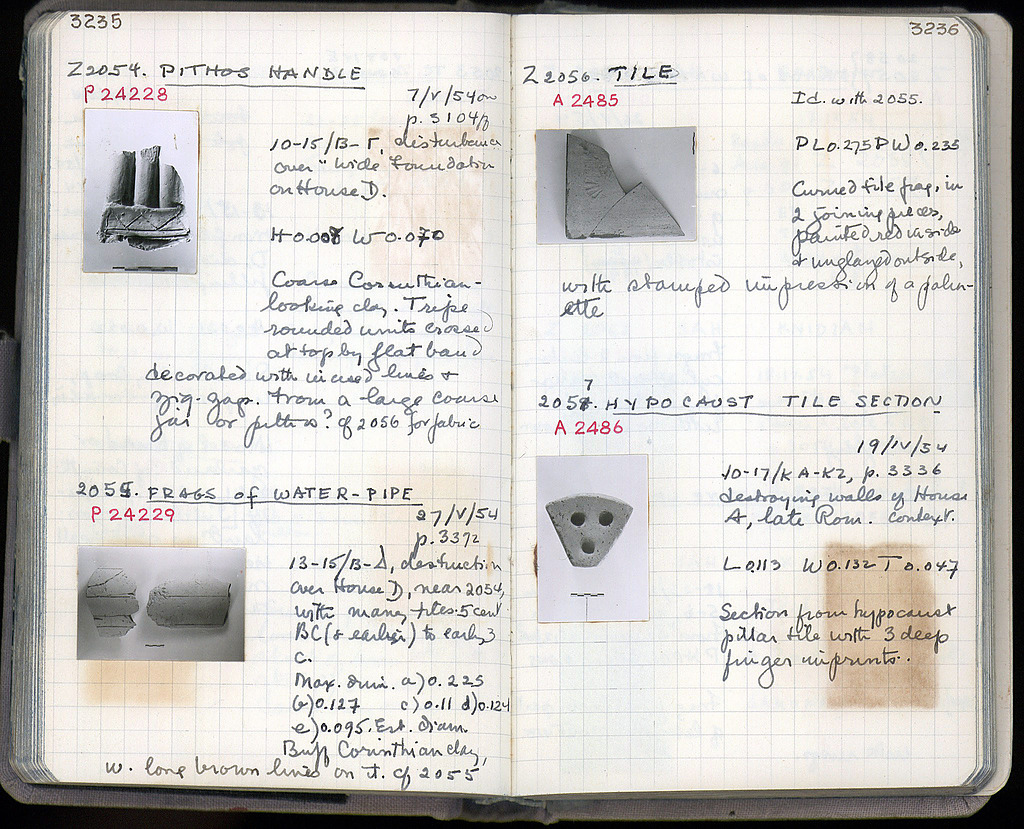 3235
Z2054. PITHOS HANDLE
P 24228
7/V/54 on
p. 3104ff
10-15/B-Γ, disturbance
over "wide foundation
on House D.
H 0.008 W 0.070
Coarse Corinthian-
looking clay. Triple
rounded units crossed
at top by flat band
decorated with incised lines &
zig-zags. From a large coarse
jar or pithos? cf 2056 for fabric
2055. FRAGS of WATER-PIPE
P 24229
27/V/54
p. 3372
13-15/B-Δ, destruction
over House D, near 2054,
with many tiles. 5 cent
BC (& earlier) to early 3
c.
Max. dim. a) 0.225
b) 0.127 c) 0.11 d) 0.124
e) 0.095. Est. diam.
Buff Corinthian clay,
w. long brown lines on it. cf 2055
3236
Z2056. TILE
A 2485
Id. with 2055.
PL 0.275 PW 0.235
Curved tile frag, in
2 joining pieces,
painted red inside
& unglazed outside,
with stamped impression of a palm-
ette
7
205. HYPOCAUST TILE SECTION
A 2486
19/IV/54
10-17/KA-KZ, p. 3336
destroying walls of House
A, late Rom. context.
L 0.113 W 0.132 T 0.047
Section from hypocaust
pillar tile with 3 deep
finger imprints.